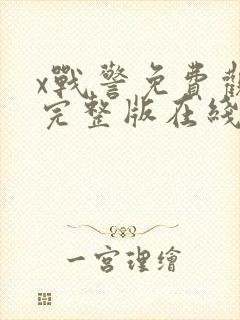 x戰警免費觀
完整版在綫
一宮理繪